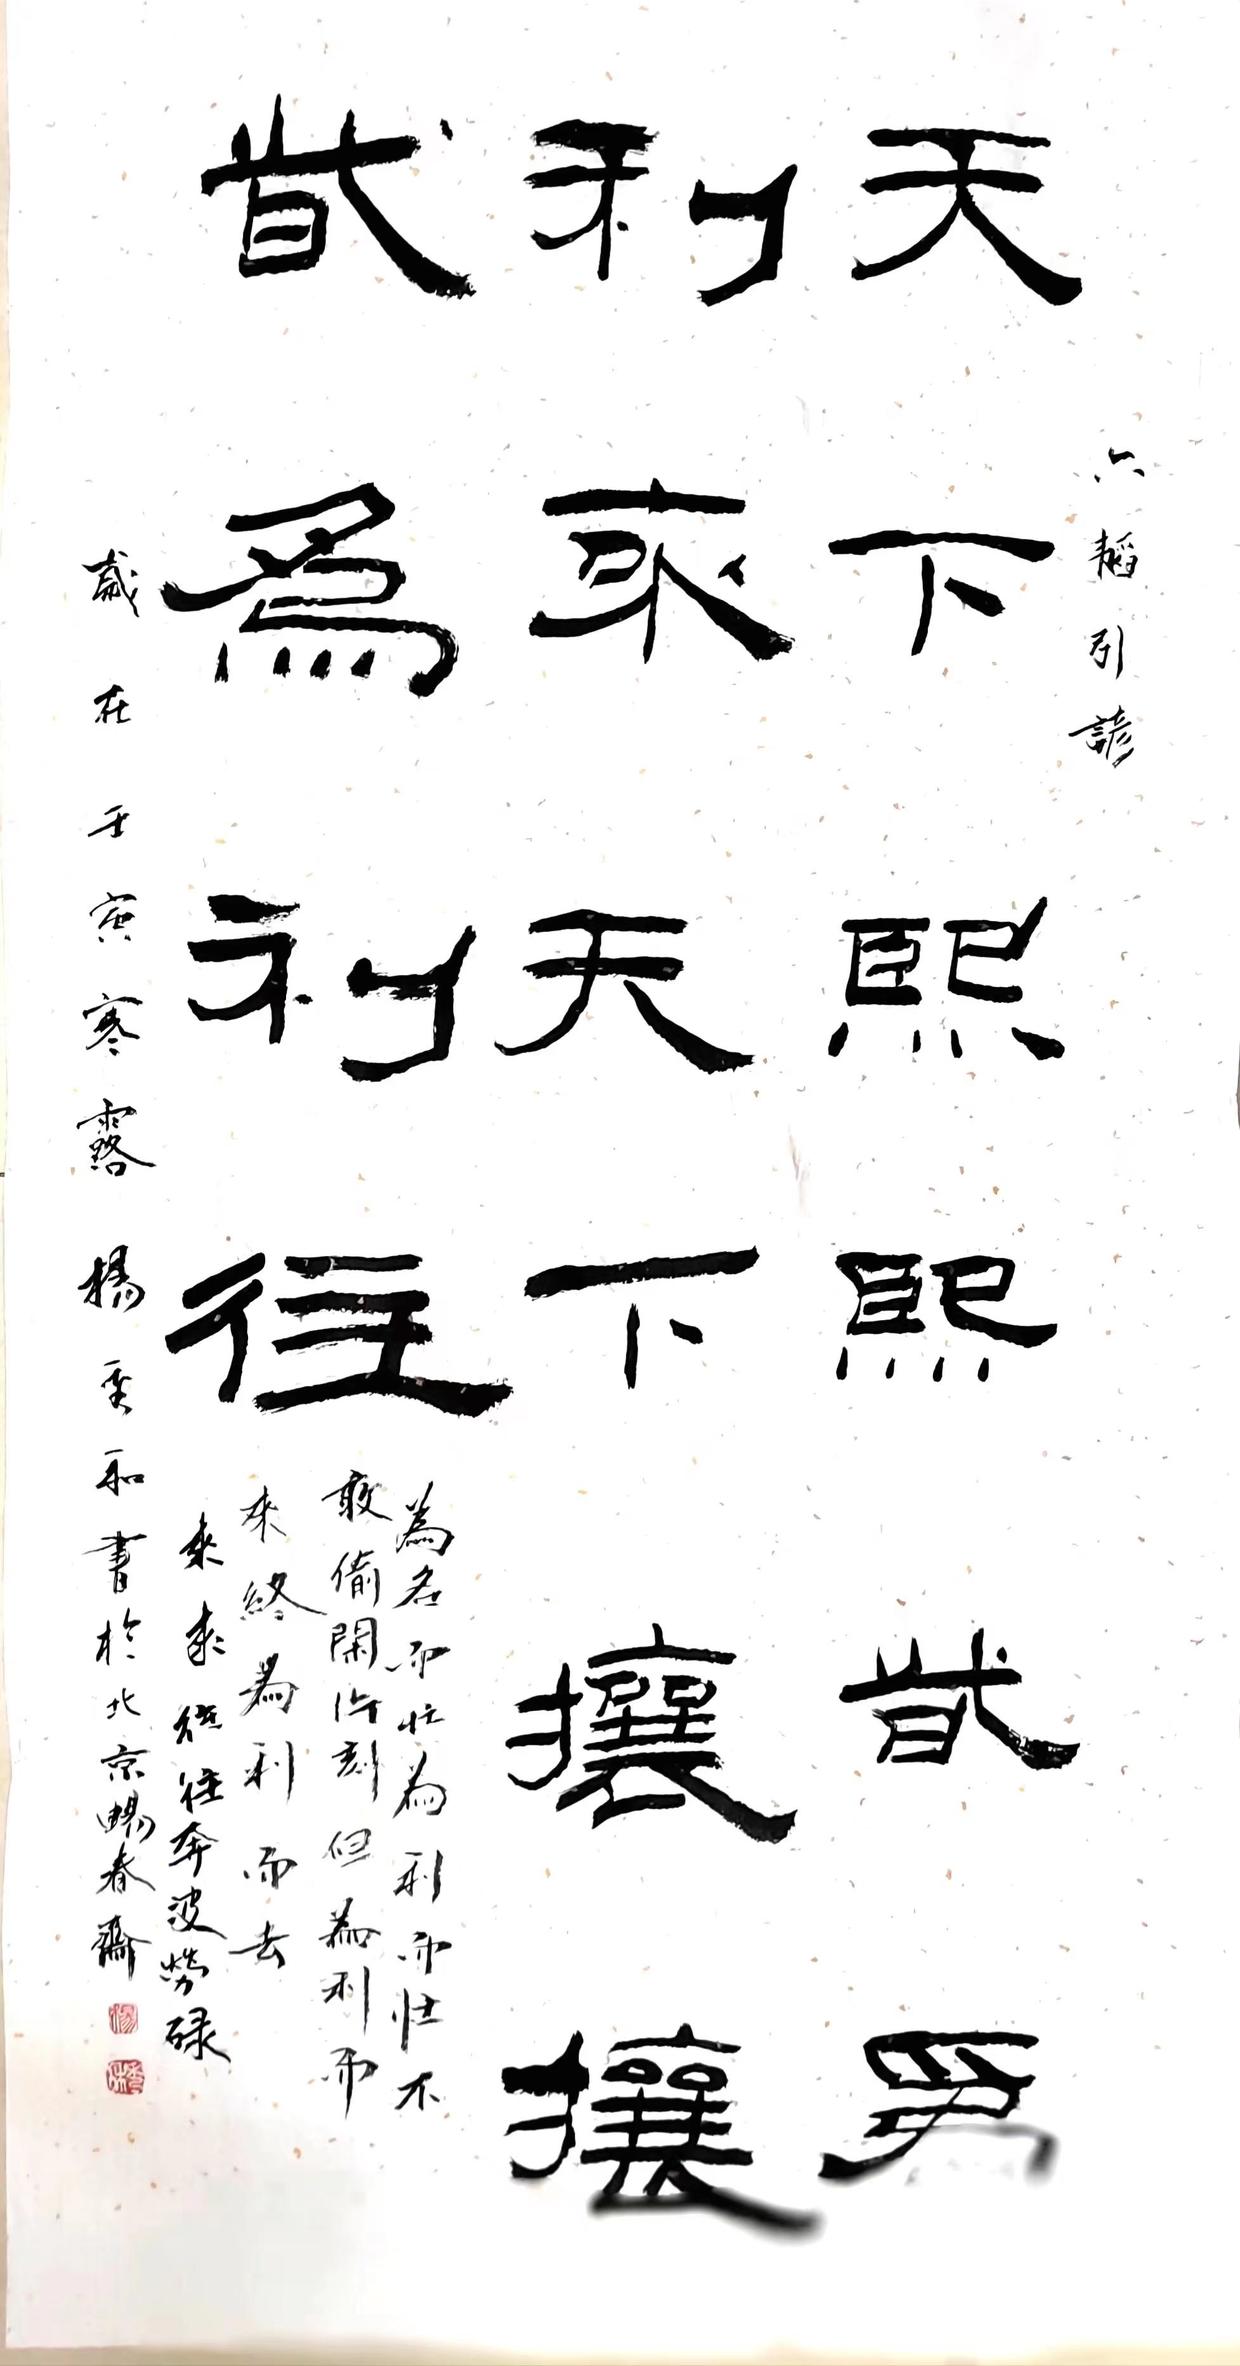 六韜引諺
天下熙熙皆為
利來天下攘攘
皆為利往
為名而忙為利而忙不
敢偷閑片刻但為利而
來終為利而去
來來往往奔波勞碌
歲在壬寅寒露楊和書於北京暢春齋